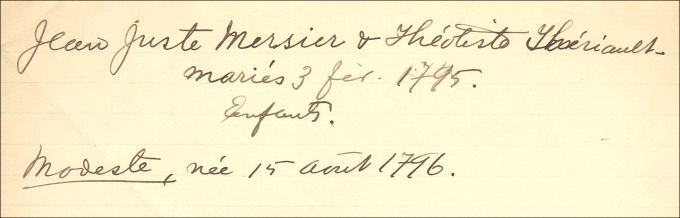 Jean Juste Mersier & Théotiste Thériault
mariés 3 fév. 1795.
Enfants.
Modeste, née 15 août 1796.